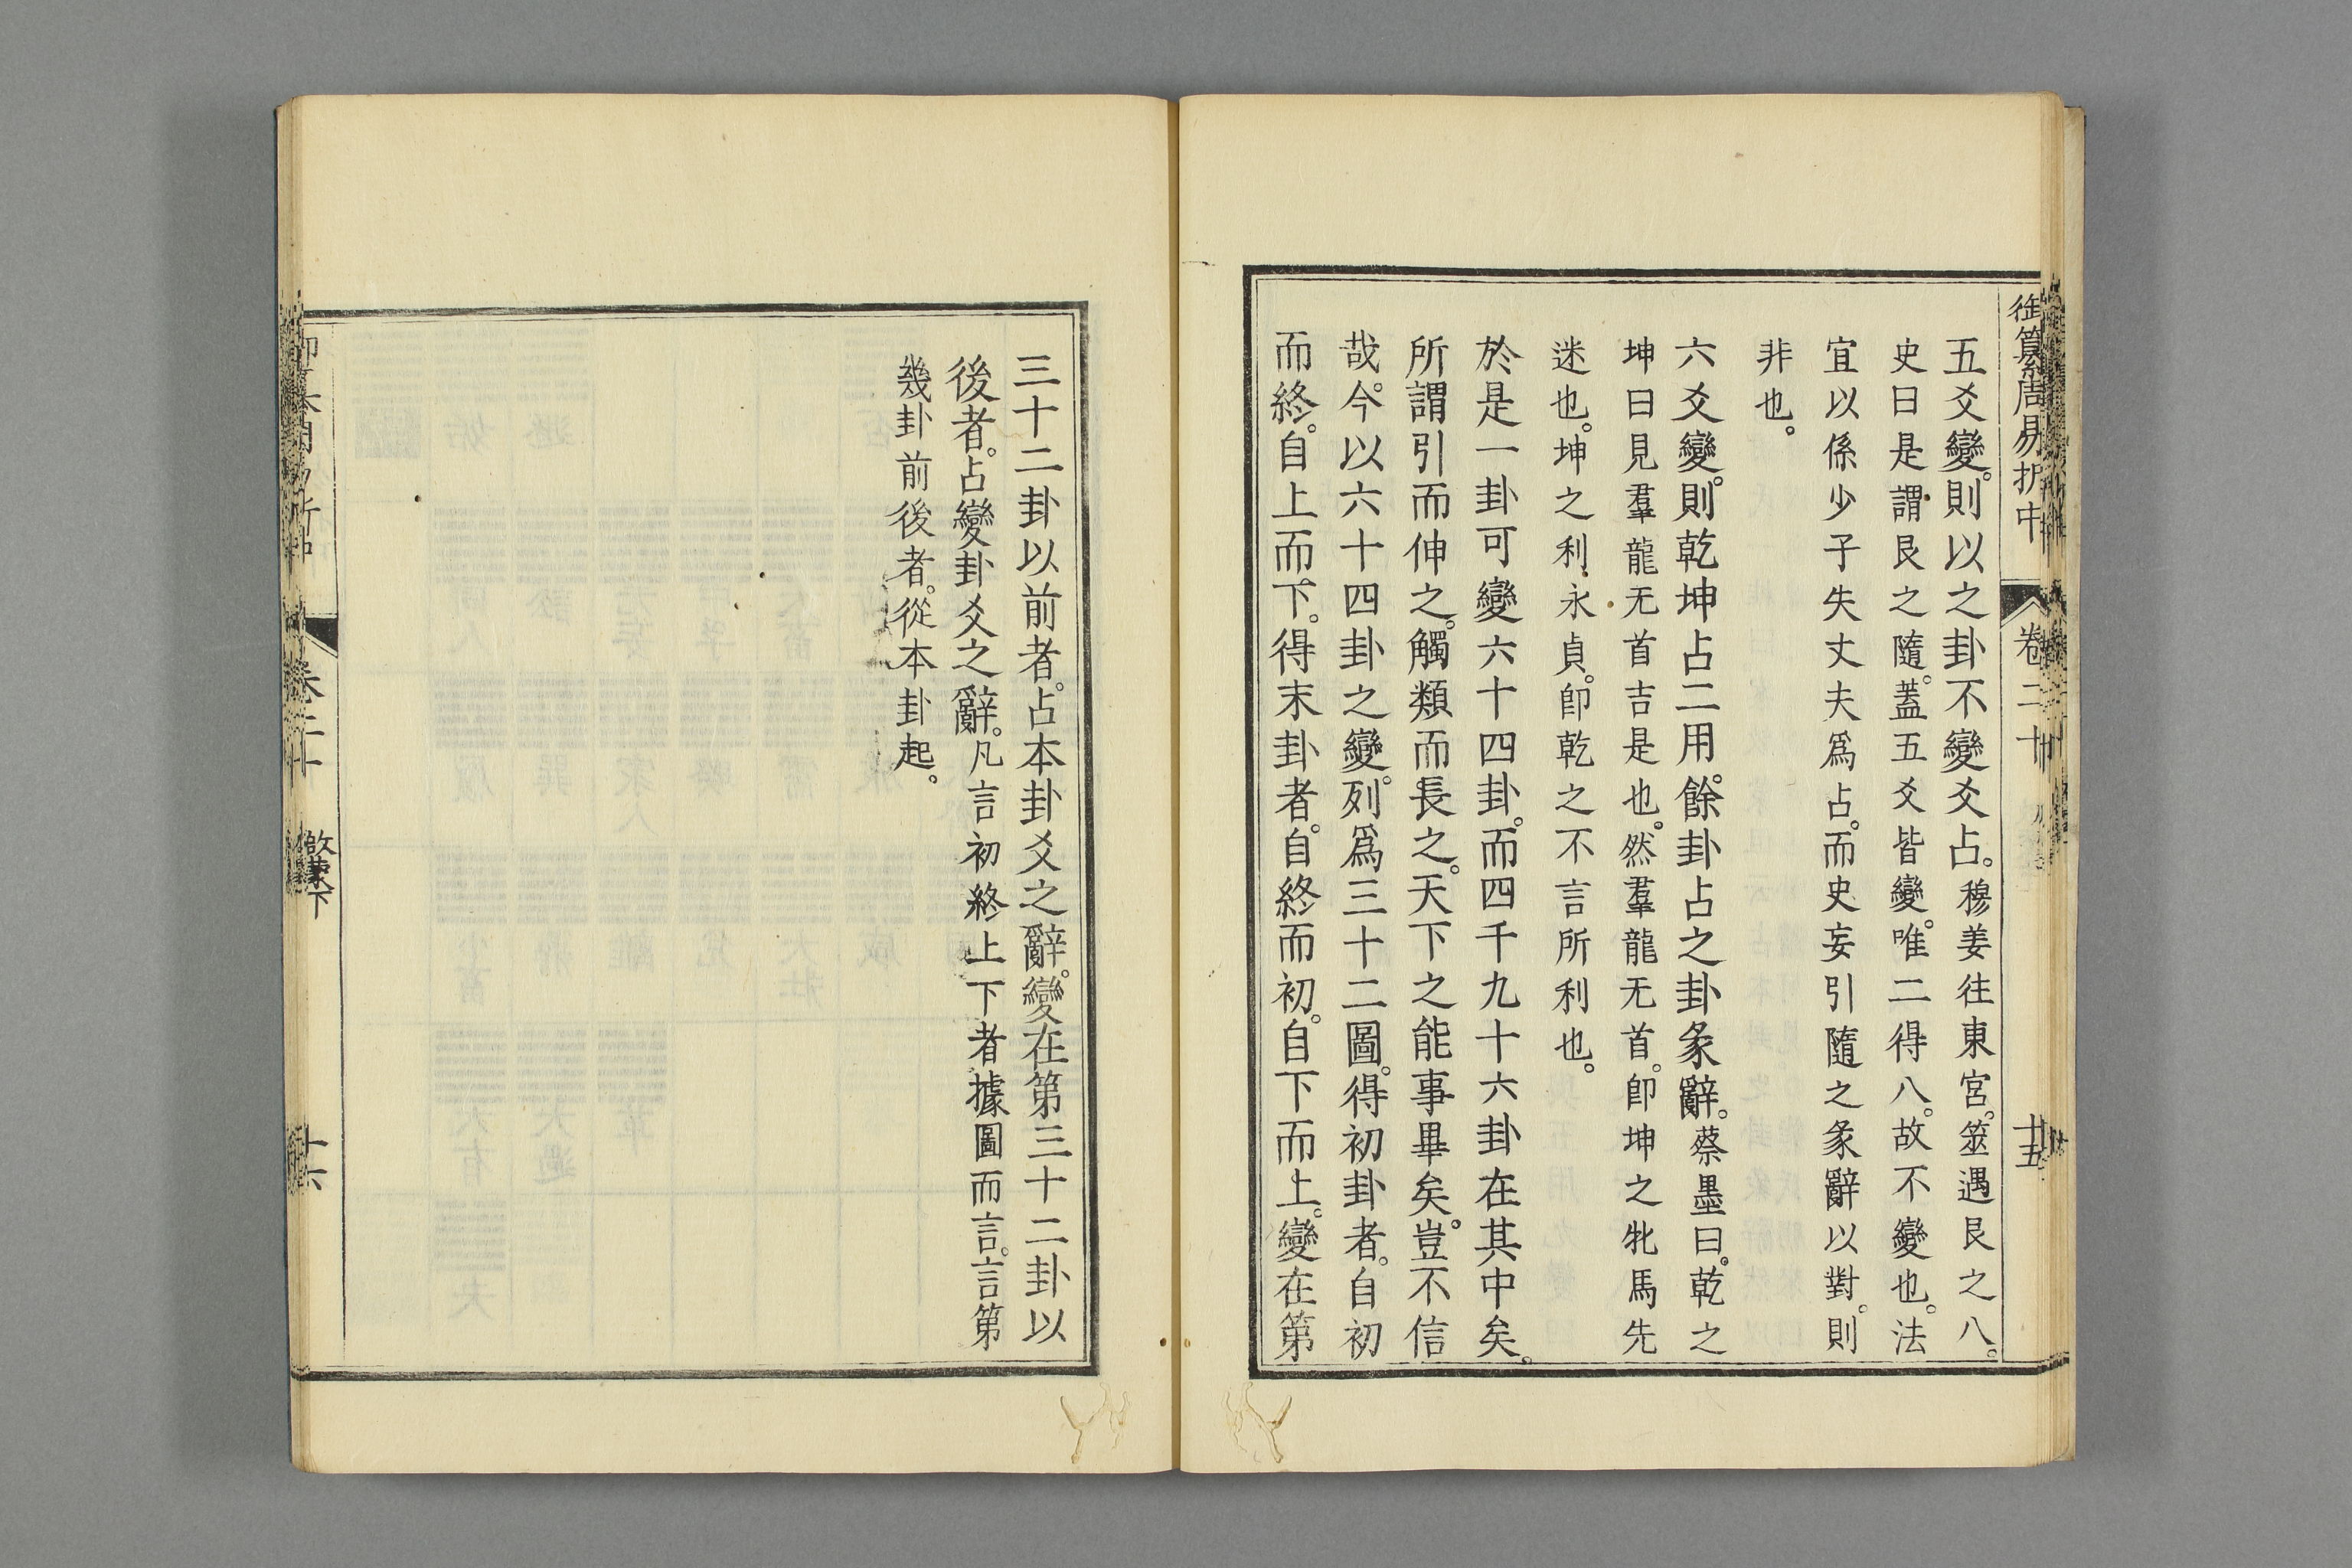 御纂周易折中
卷二十
十五
五爻變。則以之卦不變爻占。穆姜往東宮。筮遇艮之八。
史曰是謂艮之隨。蓋五爻皆變。唯二得八。故不變也。法
宜以係少子失丈夫爲占。而史妄引隨之彖辭以對。則
非也。
六爻變。則乾坤占二用。餘卦占之卦彖辭。蔡墨曰。乾之
坤曰見羣龍无首吉是也。然羣龍无首。卽坤之牝馬先
迷也。坤之利永貞。卽乾之不言所利也。
於是一卦可變六十四卦。而四千九十六卦在其中矣。
所謂引而伸之。觸類而長之。天下之能事畢矣。豈不信
哉。今以六十四卦之變。列爲三十二圖。得初卦者。自初
而終。自上而下。得末卦者。自終而初。自下而上。變在第
三十二卦以前者。占本卦爻之辭。變在第三十二卦以
後者。占變卦爻之辭。凡言初終上下者據圖而言。言第
幾卦前後者。從本卦起。
卷二十
啟蒙下
十六